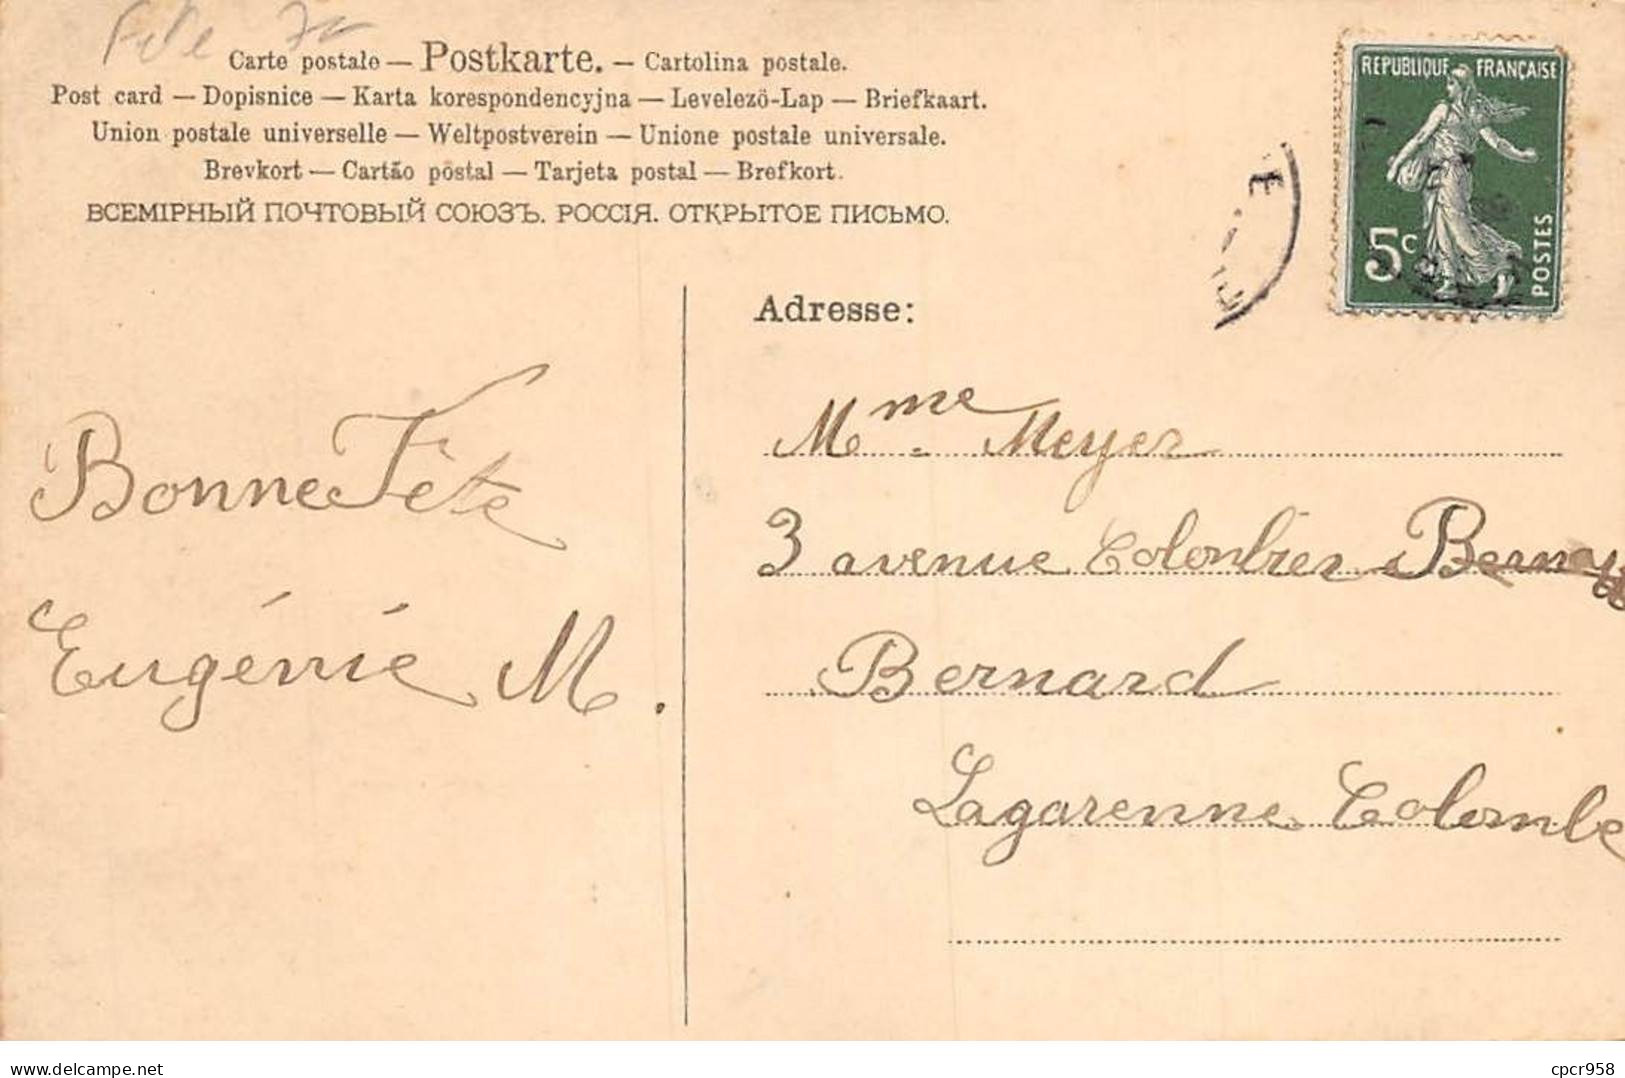 Fête
Carte postale — Postkarte. — Cartolina postale.
Post card — Dopisnice — Karta korespondencyjna — Levelezö-Lap — Briefkaart.
Union postale universelle — Weltpostverein — Unione postale universale.
Brevkort — Cartão pôstal — Tarjeta postal — Brefkort.
ВСЕМІРНЫЙ ПОЧТОВЫЙ СОЮЗЪ. РОССІЯ. ОТКРЫТОЕ ПИСЬМО.
REPUBLIQUE FRANÇAISE
5c
POSTES
Adresse:
Bonne Fête
Eugénie M.
Mme Meyer
3 avenue Colombier
Bernard
Lagarenne Colombe
Delcampe.net
cpcr958